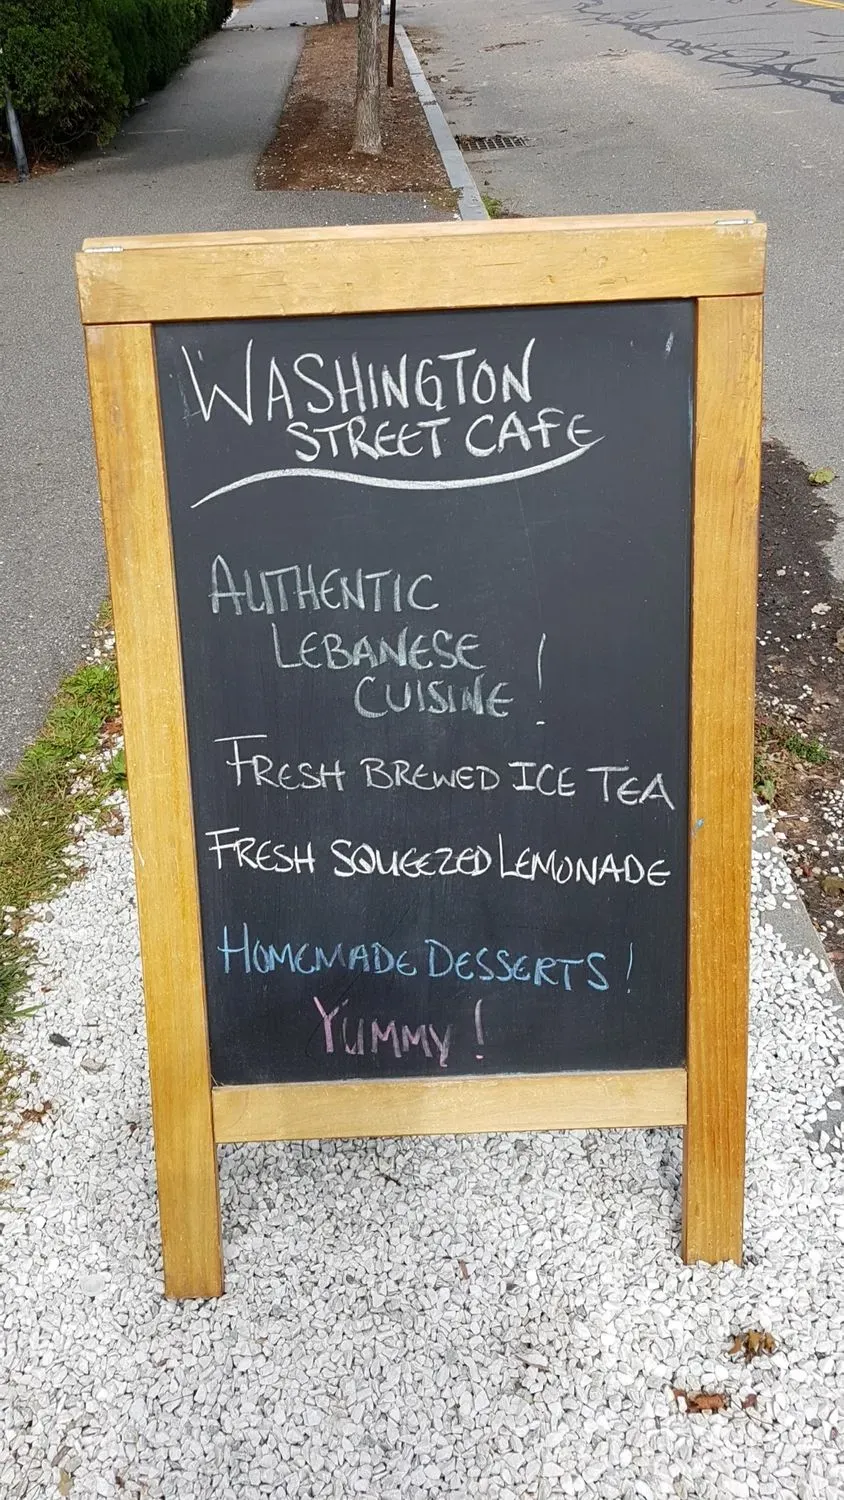 WASHINGTON
STREET CAFE
AUTHENTIC
LEBANESE
CUISINE !
FRESH BREWED ICE TEA
FRESH SQUEEZED LEMONADE
HOMEMADE DESSERTS !
YUMMY !